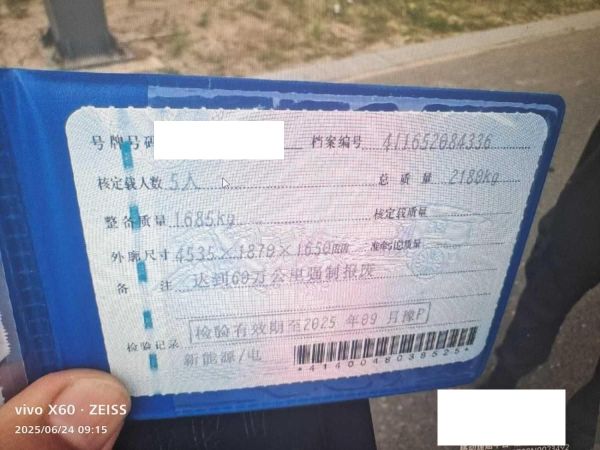 号牌号码 档案编号 411652084336
核定载人数 5人 总质量 2180kg
整备质量 1685kg 核定载质量
外廓尺寸 4535×1879×1650mm 准牵引总质量
备注 达到60万公里强制报废
检验有效期至2025年09月豫P
检验记录
新能源/电
*4140048038525*
vivo X60 · ZEISS
2025/06/24 09:15